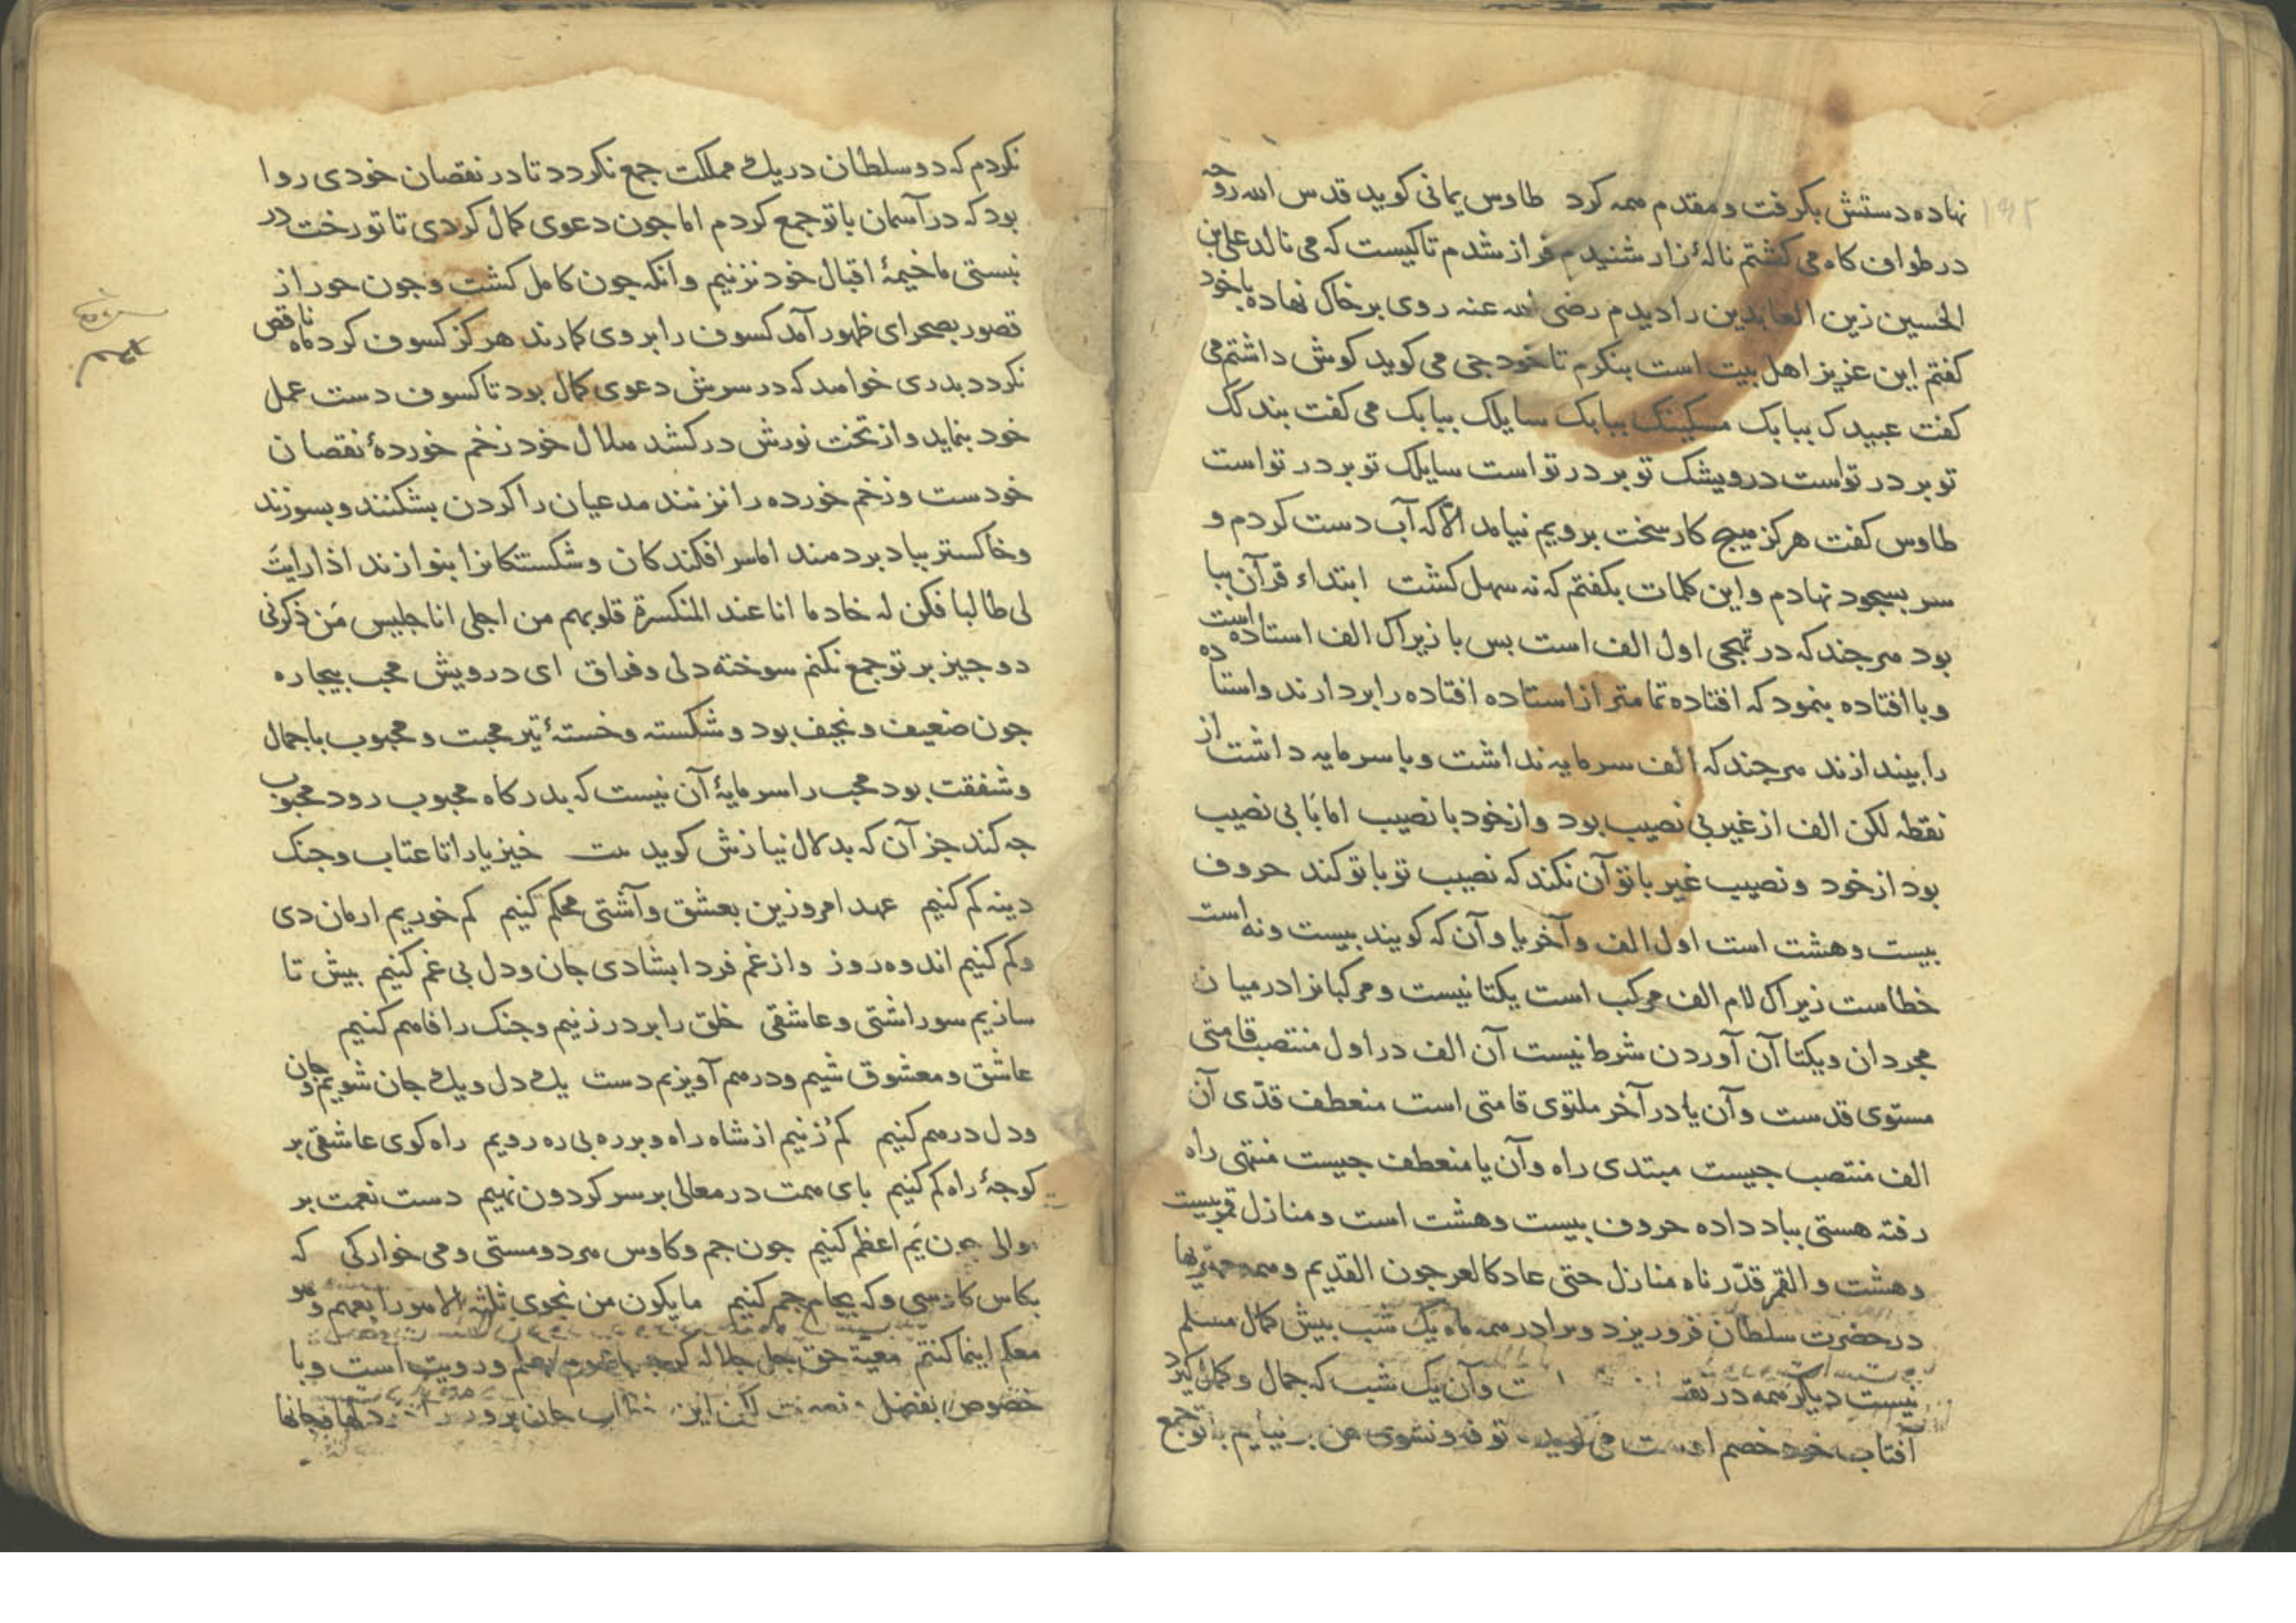 نهاده دستش بکرفت و مقدم همه کرد طاوس یمانی کوید قدس الله روحه
در طواف کاه می کشتم نالۀ زار شنیدم فراز شدم تا کیست که می نالد علی بن
الحسین زین العابدین را دیدم رضی الله عنه روی بر خاک نهاده با خود
کفتم این عزیز اهل بیت است بنکرم تا خود جی می کوید کوش داشتم می
کفت عبیدک ببابک مسکینک ببابک سایلک ببابک می کفت بندکک
تو بر در تواست درویشک تو بر در تواست سایلک تو بر در تواست
طاوس کفت هرکز هیج کار سخت برویم نیامد الّا که آب دست کردم و
سر بسجود نهادم و این کلمات بکفتم که نه سهل کشت ابتداء قرآن ببا
بود هر جند که در تهجی اول الف است بس با زیراک الف استاده است
و با افتاده بنمود که افتاده تمامتر از استاده افتاده را بردارند و استاده
را بیندازند هر جند که الف سرمایه نداشت و با سرمایه داشت از
نقطه لکن الف از غیر بی نصیب بود و از خود با نصیب اما با بی نصیب
بود از خود و نصیب غیر با تو آن نکند که نصیب تو با تو کند حروف
بیست و هشت است اول الف و آخر یا و آن که کویند بیست و نه است
خطاست زیراک لام الف مرکب است یکتا نیست و مرکبانرا در میان
مجردان و یکتا آن آوردن شرط نیست آن الف در اول منتصب قامتی
مستوی قدست و آن یا در آخر ملتوی قامتی است منعطف قدّی آن
الف منتصب جیست مبتدی راه و آن یا منعطف جیست منتهی راه
رفته هستی بباد داده حروف بیست و هشت است و منازل قمر بیست
و هشت و القمر قدّرناه منازل حتی عاد کالعرجون القدیم و همه
در حضرت سلطان فرو ریزد و مرا در همه ماه یک شب بیش کمال مسلم
نیست دیگر همه در و آن یک شب که جمال و کمال کیرد
آفتاب خود خصم است می کوید تو من بر نیایم با تو جمع
نکردم که دو سلطان در یک مملکت جمع نکردد تا در نقصان خودی روا
بود که در آسمان با تو جمع کردم اما جون دعوی کمال کردی تا تو رخت در
نبستی ما خیمۀ اقبال خود نزنیم و انکه جون کامل کشت و جون حور از
قصور بصحرای ظهور آمد کسوف را بروی کمارند هرکز کسوف کرد ماه ناقص
نکردد بدری خواهد که در سرش دعوی کمال بود تا کسوف دست عمل
خود بنماید و از تخت نورش درکشد هلال خود زخم خوردۀ نقصان
خودست و زخم خورده را نزنند مدعیان را کردن بشکنند و بسوزند
و خاکستر بباد بردهند اما سرافکندکان و شکستکانرا بنوازند اذا رایتَ
لی طالبا فکن له خادما انا عند المنکسرة قلوبهم من اجلی انا جلیس مَن ذکرنی
دو جیز بر تو جمع نکنم سوخته دلی و فراق ای درویش محب بیجاره
جون ضعیف و نحیف بود و شکسته و خستۀ تیر محبت و محبوب با جمال
و شفقت بود محب را سرمایۀ آن نیست که بدرکاه محبوب رود محبوب
جه کند جز آن که بدلال نیازش کوید بیت خیز یارا تا عتاب و جنک
دینه کم کنیم عهد امروزین بعشق و آشتی محکم کنیم کم خوریم ارمان دی
و کم کنیم اندوه روز و از غم فردا بشادی جان و دل بی غم کنیم بیش تا
سازیم سور اشتی و عاشقی خلق را بر در زنیم و جنک را فاهم کنیم
عاشق و معشوق شیم و در هم آویزیم دست یک دل و یک جان شویم و جان
و دل در هم کنیم کم زنیم از شاه راه و بر ره بی ره رویم راه کوی عاشقی بر
کوجۀ راه کم کنیم بای همت در معالی بر سر کردون نهیم دست نعمت بر
موالی جون یَم اعظم کنیم جون جم و کاوس هر دو مستی و می خوارکی که
بکاس کاوسی و که بجام جم کنیم ما یکون من نجوی ثلثه الا هو رابعهم و هو
معکم اینما کنتم معیّة حق جل جلاله کرجه بعلم و رویت است و با
خصوص بفضل و لکن این جان برور دلها و جانها